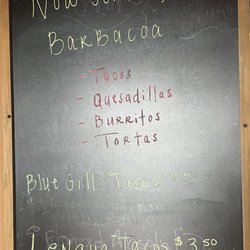 Now
BARBACOA
- TACOS
- QUESADILLAS
- BURRITOS
- TORTAS
Blue Grill Tacos $
LENGUA TACOS $3.50